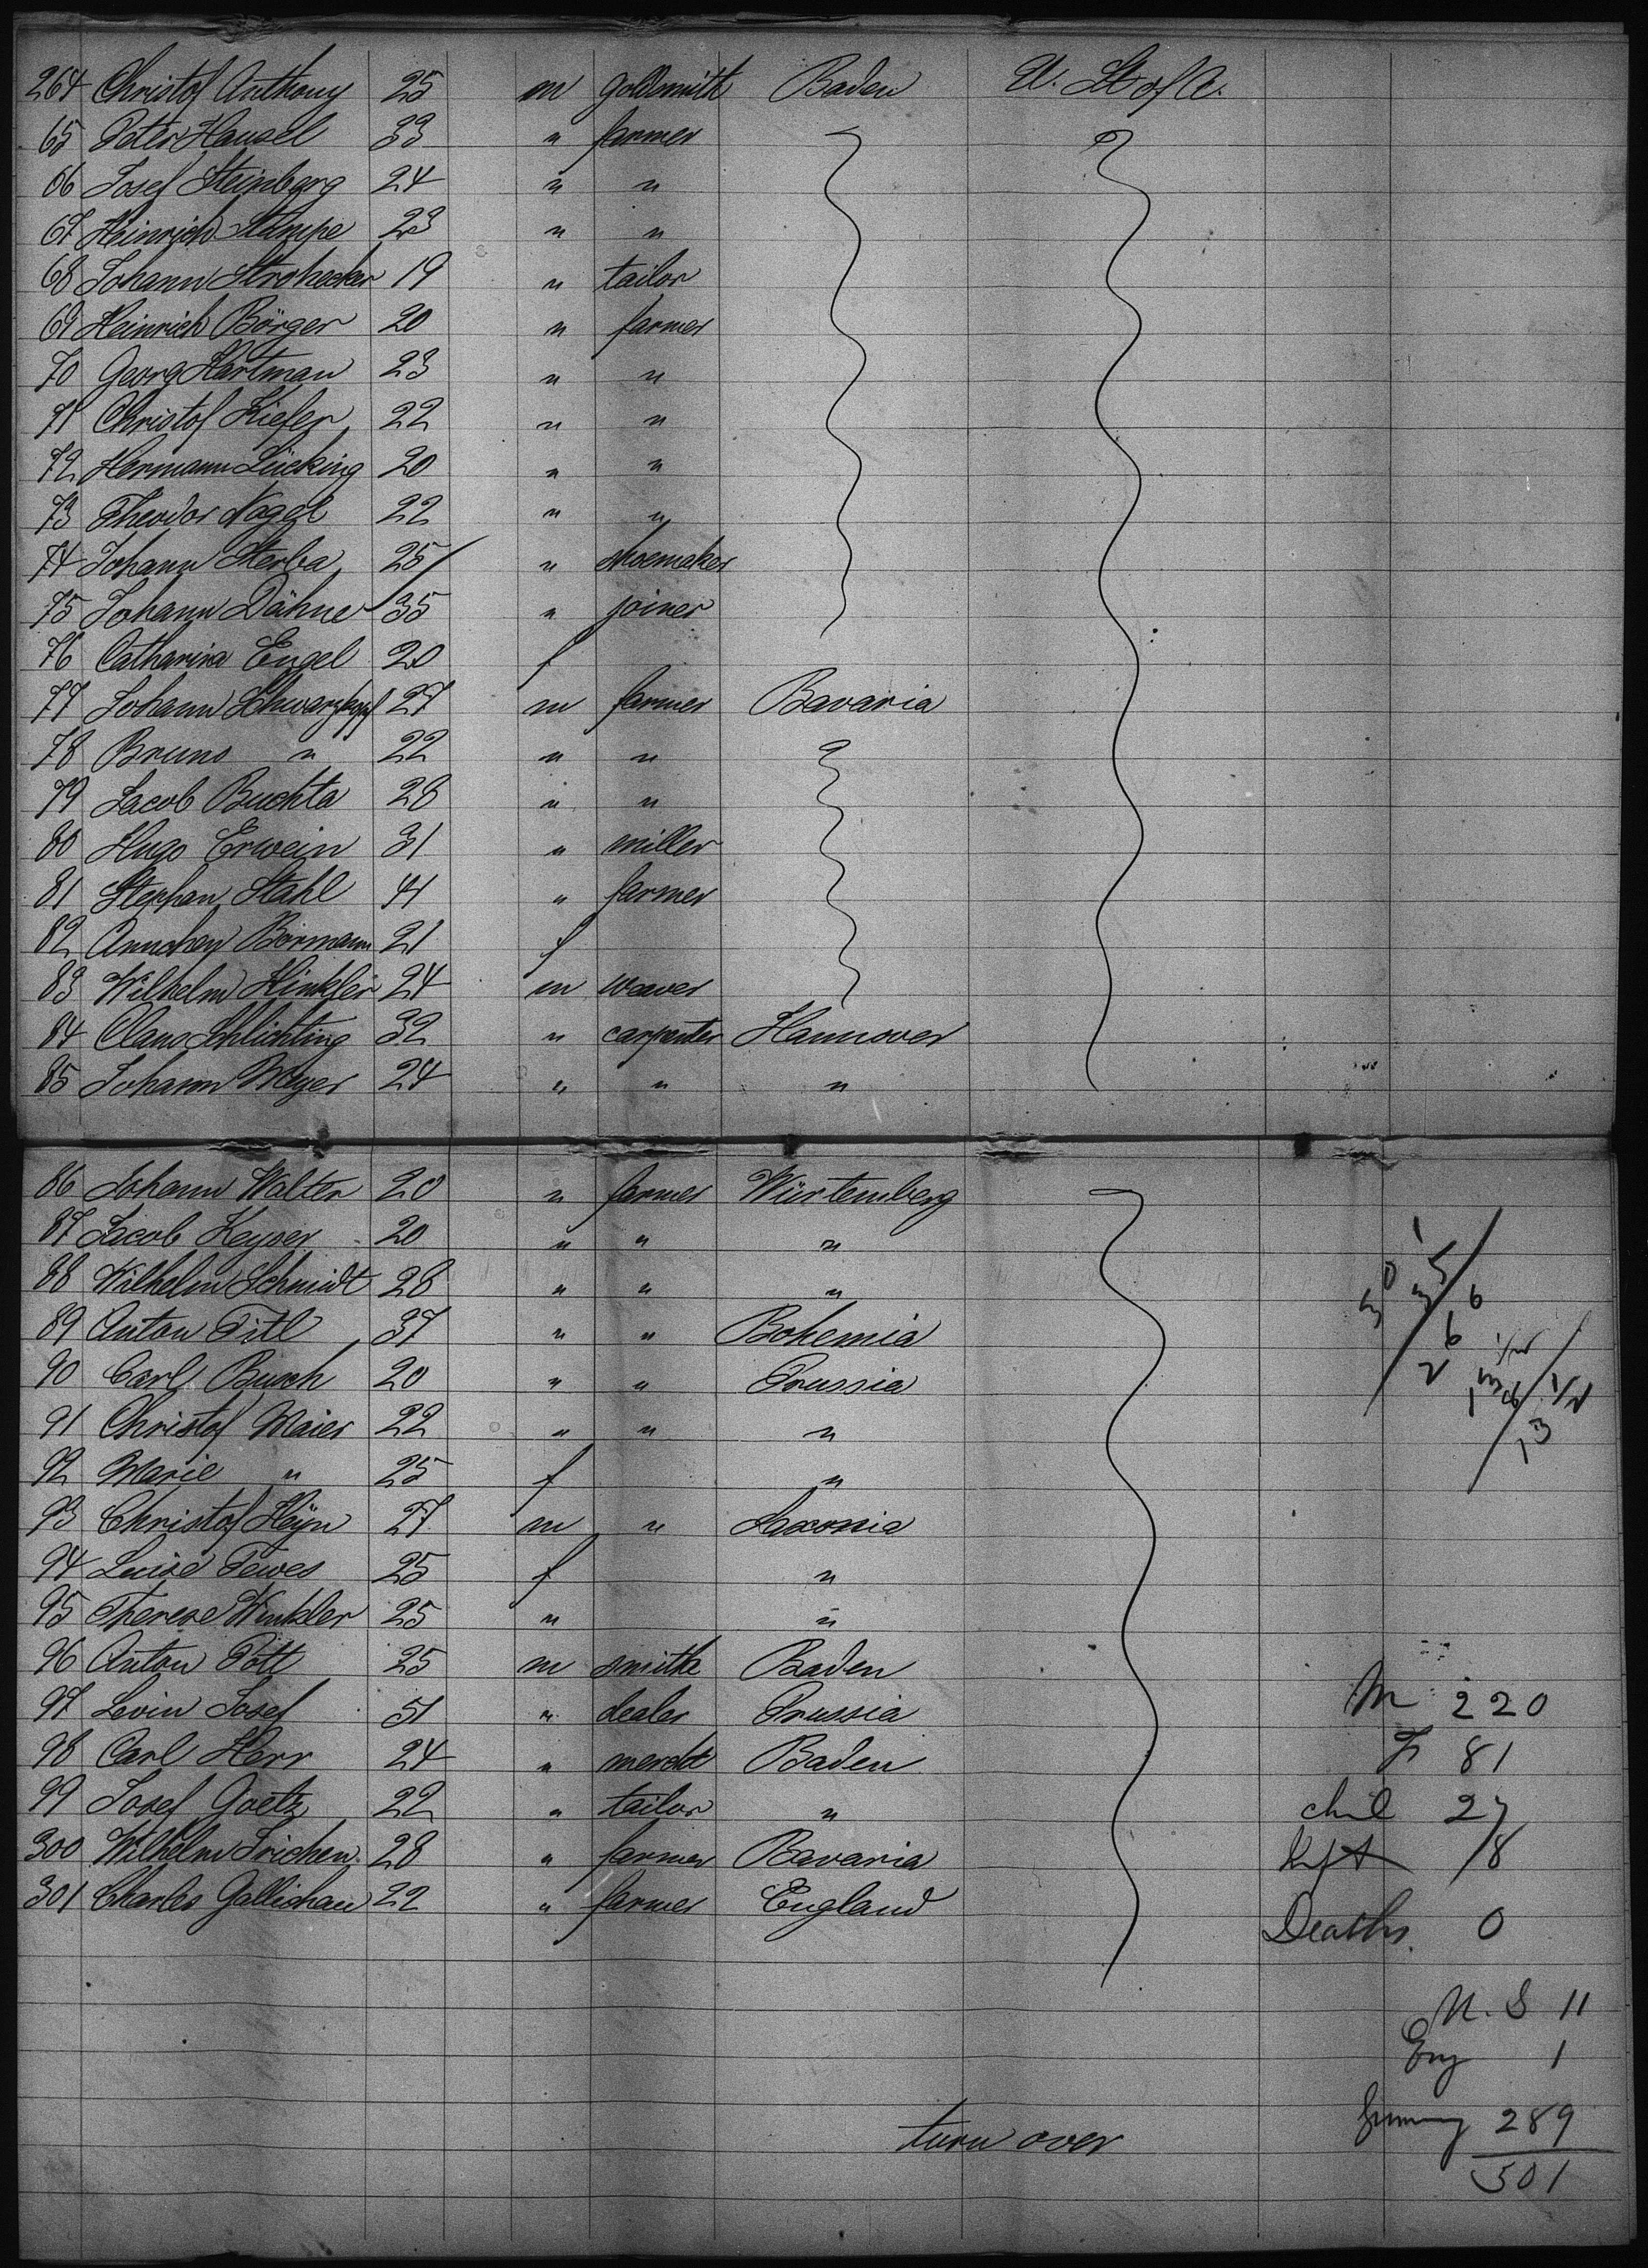 264 Christof Anthony 25 m goldsmith Baden U. St of A.
65 Peter Hausel 33 " farmer
66 Josef Steinberg 24 " "
67 Heinrich Stumpe 23 " "
68 Johann Strohecker 19 " tailor
69 Heinrich Börger 20 " farmer
70 Georg Hartman 23 " "
71 Christof Kiefer 22 " "
72 Hermann Lücking 20 " "
73 Theodor Nagel 22 " "
74 Johann Sterba 25 " shoemaker
75 Johann Dähne 35 " joiner
76 Catharina Engel 20 f
77 Johann Schwarzkopf 27 m farmer Bavaria
78 Bruno " 22 " "
79 Jacob Buchta 28 " "
80 Hugo Erwein 31 " miller
81 Stephan Stahl 41 " farmer
82 Annchen Bormann 21 f
83 Wilhelm Hinkler 24 m weaver
84 Claus Schlichting 32 " carpenter Hannover
85 Johann Meyer 24 " " "
86 Johann Walter 20 " farmer Würtemberg
87 Jacob Keyser 20 " " "
88 Wilhelm Schmidt 28 " " "
89 Anton Titl 37 " " Bohemia
90 Carl Busch 20 " " Prussia
91 Christof Maier 22 " " "
92 Marie " 25 f "
93 Christof Heyn 27 m " Saxonia
94 Luise Tewes 25 f "
95 Therese Winkler 25 " "
96 Anton Pott 25 m smithe Baden
97 Levin Josef 51 " dealer Prussia
98 Carl Herr 24 " mercht Baden
99 Josef Goetz 22 " tailor "
300 Wilhelm 28 " farmer Bavaria
301 Charles Gallichan 22 " farmer England
M 220
F 81
chil 27
Inft 18
Deaths 0
U. S 11
Eng 1
Germany 289
301
turn over